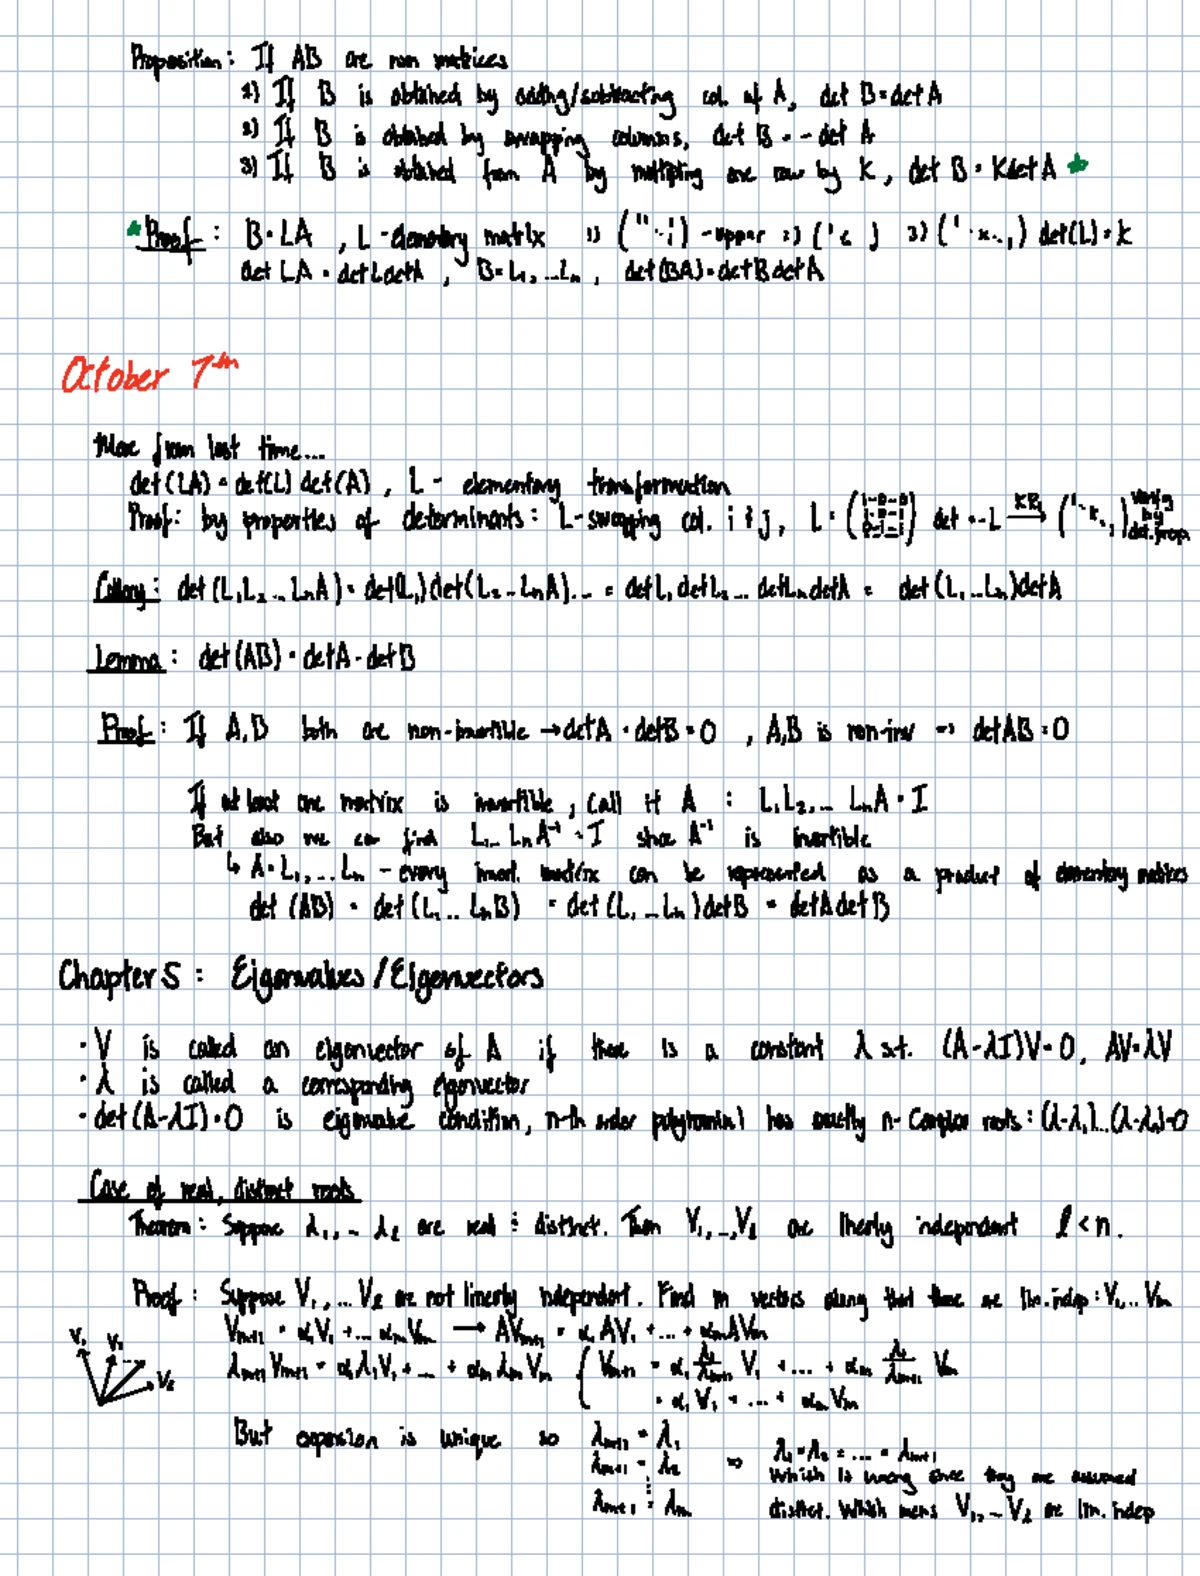 Proposition: If AB are nxn matrices
1) If B is obtained by adding/subtracting col. of A, det B = det A
2) If B is obtained by swapping columns, det B = - det A
3) If B is obtained from A by multipling one row by K, det B = K det A *
* Proof: B = LA, L - elementary matrix 1) ( ) - upper 2) ( ) 3) ( ) det(L) = k
det LA = det L det A, B = L₁, ... Ln, det(BA) = det B det A
October 7th
More from last time...
det(LA) = det(L) det(A), L - elementary transformation
Proof: by properties of determinants: L - swapping col. i & j, L = ( ) det = -L KRi → ( ) verify by det. prop.
det(L₁L₂...LnA) = det(L₁)det(L₂...LnA)... = det L₁ det L₂ ... det Ln det A = det(L₁...Ln)det A
Lemma: det(AB) = det A · det B
Proof: If A,B both are non-invertible → det A · det B = 0, A,B is non-inv => det AB = 0
If at least one matrix is invertible, call it A : L₁L₂,... LnA = I
But also we can find L₁...Ln A⁻¹ = I since A⁻¹ is invertible
↳ A = L₁,...Ln - every invert. matrix can be represented as a product of elementary matrices
det(AB) = det(L₁...LnB) = det(L₁...Ln)det B = det A det B
Chapter 5: Eigenvalues/Eigenvectors
· V is called an eigenvector of A if there is a constant λ s.t. (A-λI)V = 0, AV = λV
· λ is called a corresponding eigenvector
· det(A-λI) = 0 is eigenvalue condition, n-th order polynomial has exactly n-complex roots: (λ-λ₁)...(λ-λn)=0
Case of real, distinct roots
Theorem: Suppose λ₁,... λℓ are real & distinct. Then V₁,...,Vℓ are linerly independent ℓ < n.
Proof: Suppose V₁,... Vℓ are not linerly independent. Find m vectors along that these are lin. indep: V₁... Vm
Vm+1 = α₁V₁ + ... αmVm → AVm+1 = α₁AV₁ + ... + αmAVm
V₁ V₁ ... Vℓ
λm+1Vm+1 = α₁λ₁V₁ + ... + αmλmVm { Vm+1 = α₁ λ₁/λm+1 V₁ + ... + αm λm/λm+1 Vm
= α₁V₁ + ... + αmVm
But expansion is unique so λm+1 = λ₁
λm+1 = λ₂ => λ₁ = λ₂ = ... = λm+1
⋮ Which is wrong since they are assumed
λm+1 = λm distinct. Which means V₁,...Vℓ are lin. indep